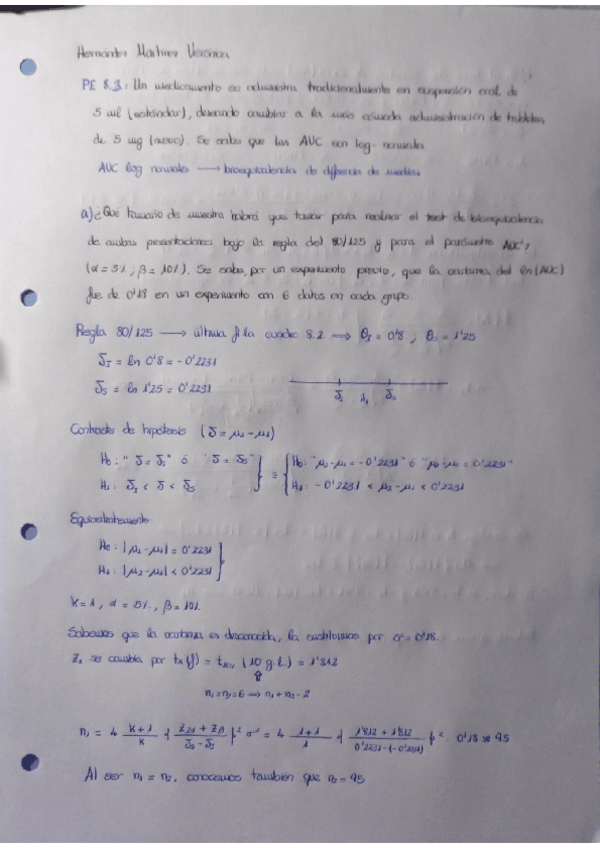 Hernández Martínez Verónica
PE 8.3: Un medicamento se administra tradicionalmente en suspensión oral de
5 ml (estándar), deseando cambiar a la cómoda administración de tabletas
de 5 mg (nuevo). Se sabe que las AUC son log-normales
AUC log normales ⟶ bioequivalencia de diferencia de medias
a) ¿Qué tamaño de muestra habrá que tomar para realizar el test de bioequivalencia
de ambas presentaciones bajo la regla del 80/125 y para el parámetro AUC?
(α = 5%, β = 10%). Se sabe, por un experimento previo, que la del ln(AUC)
fue de 0'18 en un experimento con 6 datos en cada grupo.
Regla 80/125 ⟶ última fila cuadro 8.2 ⟶ θ_I = 0'8, θ_S = 1'25
δ_I = ln 0'8 = -0'2231
δ_S = ln 1'25 = 0'2231
δ_I δ_S
Contraste de hipótesis (δ = μ₂ - μ₁)
H₀: "δ = δ_I" ó "δ = δ_S" } ≡ { H₀: "μ₂-μ₁ = -0'2231" ó "μ₂-μ₁ = 0'2231"
H₁: δ_I < δ < δ_S } ≡ { H₁: -0'2231 < μ₂-μ₁ < 0'2231
Equivalentemente
H₀: |μ₂-μ₁| = 0'2231
H₁: |μ₂-μ₁| < 0'2231
K = 1, α = 5%, β = 10%
Sabemos que la es desconocida, la sustituimos por = 0'18.
se cambia por (10 g.l.) = 1'812
n₁ = n₂ = 6 ⟹ n₁ + n₂ - 2
n₁ = 4 (K+1)/K { (z_2α + z_β)/(δ_S - δ_I) }² σ² = 4 (1+1)/1 { (1'812 + 1'812)/(0'2231-(-0'2231)) }² 0'18 ≈ 95
Al ser n₁ = n₂, conocemos también que n₂ = 95